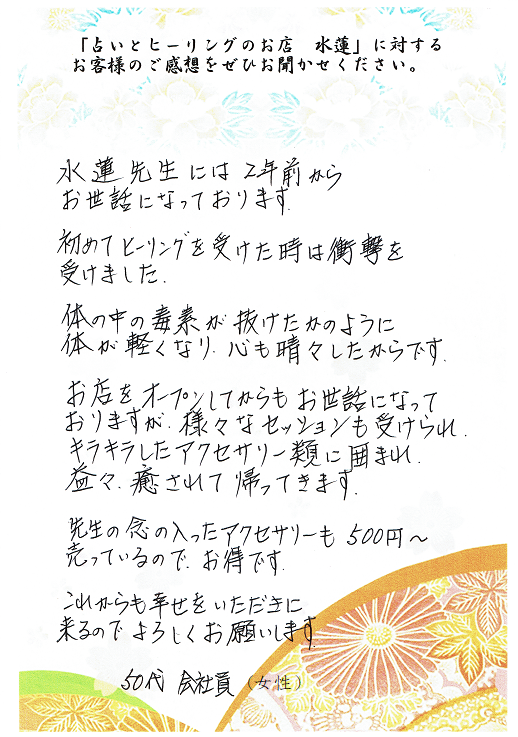 「占いとヒーリングのお店　水蓮」に対する
お客様のご感想をぜひお聞かせください。
水蓮先生には2年前から
お世話になっております.
初めてヒーリングを受けた時は衝撃を
受けました.
体の中の毒素が抜けたかのように
体が軽くなり.心も晴々したからです.
お店をオープンしてからもお世話になって
おりますが.様々なセッションも受けられ.
キラキラしたアクセサリー類に囲まれ.
益々.癒されて帰ってきます.
先生の念の入ったアクセサリーも500円〜
売っているので.お得です.
これからも幸せをいただきに
来るのでよろしくお願いします
50代 会社員（女性）